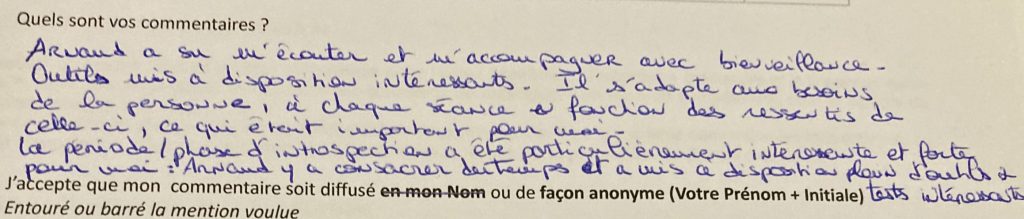 Quels sont vos commentaires ?
Arnaud a su m'écouter et m'accompagner avec bienveillance.
Outils mis à disposition intéressants. Il s'adapte aux besoins
de la personne, à chaque séance en fonction des ressentis de
celle-ci, ce qui était important pour moi.
La période/phase d'introspection a été particulièrement intéressante et forte
pour moi : Arnaud y a consacrer du temps et a mis à disposition plein d'outils &
tests intéressants
J'accepte que mon commentaire soit diffusé en mon Nom ou de façon anonyme (Votre Prénom + Initiale)
Entouré ou barré la mention voulue